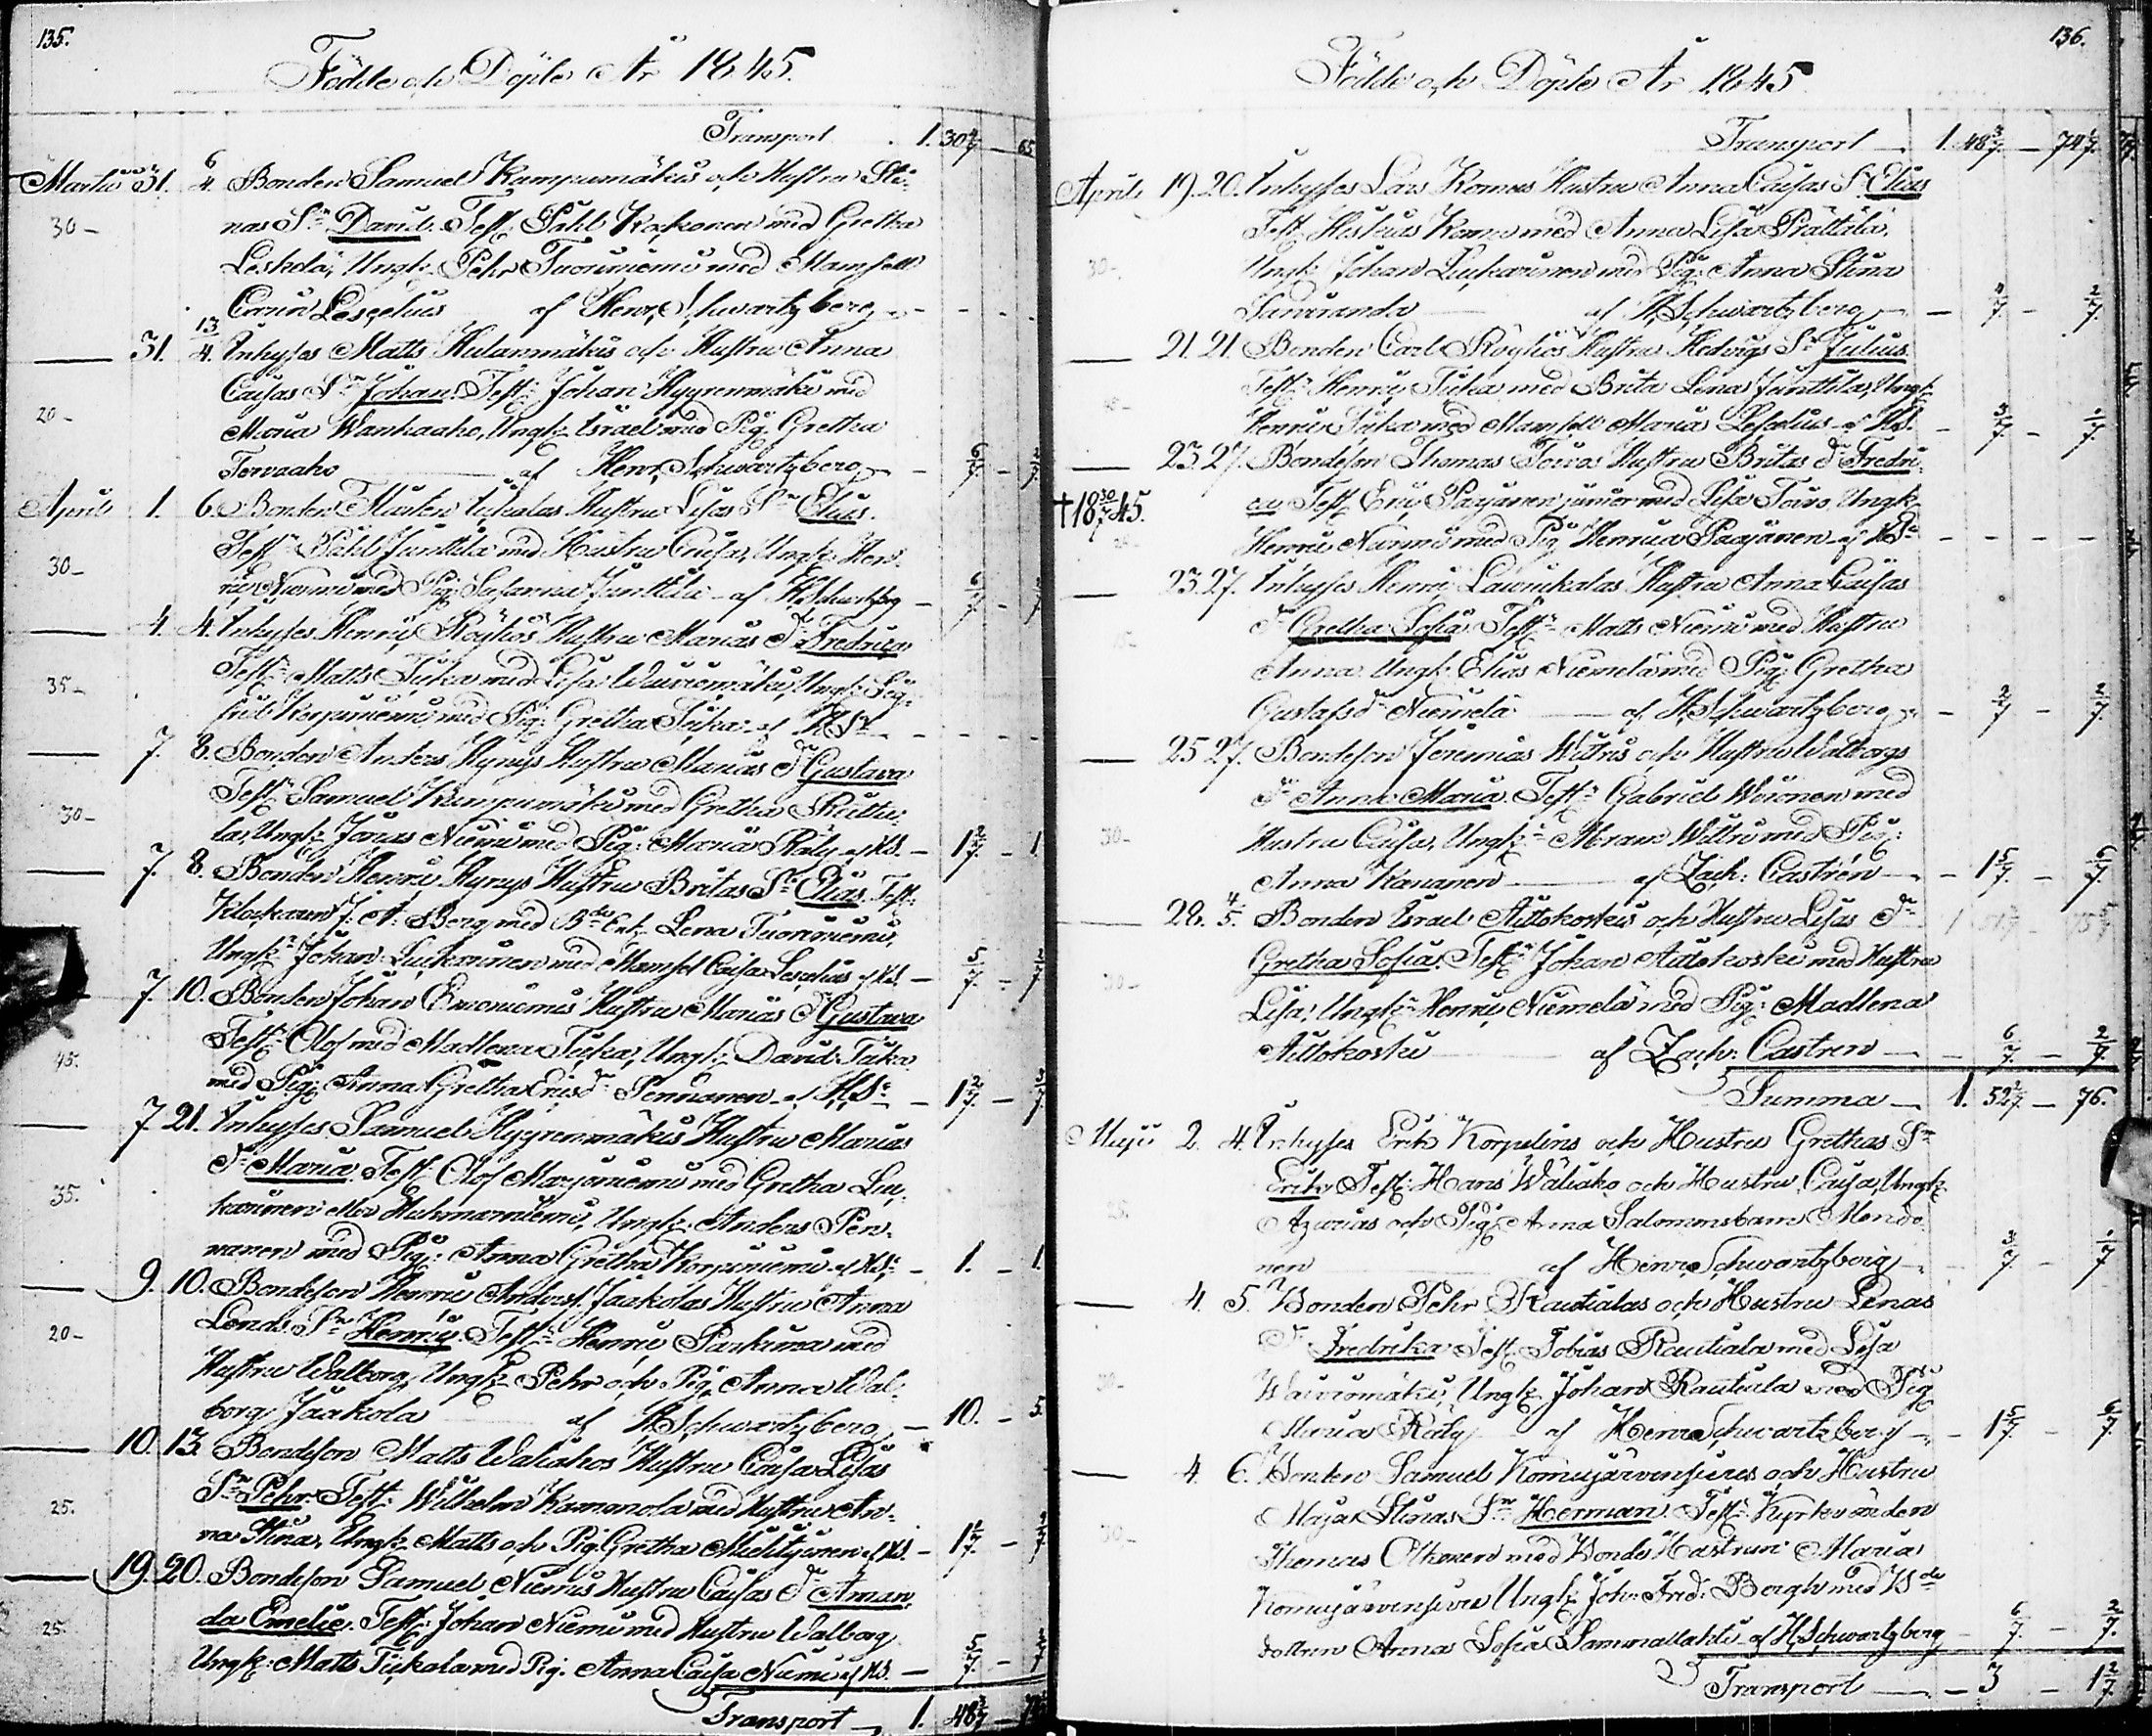 135.
Födde och Döpte År 1845.
Transport 1. 30 4/7 65
Martii 31. 6/4. Bonden Samuel Kampumäkis och Hustru Sti-
30- nas Sn David. Test: Påhl Kockonen med Gretha
Leskelä, Ungk: Pehr Tuoriniemi med Mamsell
Lescelius af Henr. Schwartzberg
31. 13/4. Inhyses Matts Hulanmäkis och Hustru Anna
Caisas Sn Johan. Test: Johan Hyyrenmäki med
20- Maria Wankaaho, Ungk: Israel med Pig. Gretha
Tervaaho af Henr. Schwartzberg 6/7
Aprili 1. 6. Bonden Mårten Tickalas Hustru Lisas Sn Elias.
Test: Påhl Junttila med Hustru Caisa, Ungk: Hen-
30- ric Niemi med Pig. Susanna Junttila af H. Schwartzberg 6/7
4. 4. Inhyses Henric Röyhiös Hustru Marias Dr Fredrica
35- Test: Matts Tuka med Lisa Wuoriomäki, Ungk: Sig-
frid Korpiniemi med Pig: Gretha Tuka af H. Sn
7. 8. Bonden Anders Hyrys Hustru Marias Dr Gustava
Test: Samuel Kumpumäki med Gretha Ruttu-
30- la, Ungk: Jonas Niemi med Pig: Maria Räty af HS. 1 2/7 1
7. 8. Bonden Henric Hyrys Hustru Britas Sn Elias. Test:
Klockaren J. A. Berg med Bde Enk. Lena Tuoriniemi,
Ungk: Johan Luckarinen med Mamsel Caisa Lescelius af HS. 5/7
7. 10. Bonden Johan Emoniemis Hustru Marias Dr Gustava
Test: Olof med Madlena Tuka, Ungk: David Tuka
45. med Pig: Anna Gretha Ericsdr Pennanen af H. Sn 1 2/7 3/7
7. 21. Inhyses Samuel Hyyrenmäkis Hustru Marias
Dr Maria. Test: Olof Marjoniemi med Gretha Luc-
35. karinen eller Huhmarniemi, Ungk: Anders Pen-
nanen med Pig: Anna Gretha Korpiniemi af HS. 1. 1.
9. 10. Bondeson Henric Anders. Jaakolas Hustru Anna
Lenas Sn Henric. Test: Henric Parkina med
20- Hustru Walborg, Ungk: Pehr och Pig. Anna Wal-
borg Jaakola af H. Schwartzberg 10. 5.
10. 13. Bondeson Matts Waliahos Hustru Caisa Lisas
Sn Pehr. Test: Wilhelm Kamonola med Hustru An-
25. na Stina, Ungk: Matts och Pig. Gretha Mielityinen af HS. 1 1/7
19. 20. Bondeson Samuel Niemis Hustru Caisas Dr Aman-
da Emelie. Test: Johan Niemi med Hustru Walborg
25. Ungk: Matts Tickala med Pig. Anna Caisa Niemi af HS. 5/7
Transport 1. 48 3/7
136.
Födde och Döpte År 1845
Transport 1. 48 3/7 74 1/7
Aprili 19. 20. Inhyses Lars Komus Hustru Anna Caisas Sn Elias
Test: Heskias Komu med Anna Lisa Prättälä,
30- Ungk: Johan Luckarinen med Pig: Anna Stina
Saniranda af H. Schwartzberg 4/7 2/7
21. 21. Bonden Carl Röyhiös Hustru Hedvigs Sn Julius
Test: Henric Tuka med Brita Lena Junttila, Ungk:
Henric Tuka med Mamsell Maria Lescelius af HS. 3/7
23. 27. Bondeson Thomas Toivos Hustru Britas Dr Fredri-
† 18 30/7 45. ca Test: Eric Paajanen junior med Lisa Toivo, Ungk:
Henric Nurmi med Pig. Henrica Paajanen af H. Sn
23. 27. Inhyses Henric Laurikalas Hustru Anna Caisas
Dr Gretha Sofia. Test: Matts Niemi med Hustru
Anna Ungk: Elias Niemelä med Pig. Gretha
Gustafsdr Niemelä af H. Schwartzberg 2/7 2/7
25. 27. Bondeson Jeremias Wiltris och Hustru Walborgs
Dr Anna Maria. Test: Gabriel Woronen med
30- Hustru Caisa, Ungk: Abram Wiltri med Pig:
Anna Kananen af Zach: Castrén 1 5/7 6/7
28. 4/5. Bonden Israel Aittokoskis och Hustru Lisas Dr
30- Gretha Sofia. Test: Johan Aittokoski med Hustru
Lisa, Ungk: Henric Niemelä med Pig: Madlena
Aittokoski af Zach: Castren 6/7 2/7
Summa 1. 52 2/7 76.
Maji 2. 4. Inhyses Erik Korpelins och Hustru Grethas Sn
Erik Test: Hans Waliaho och Hustru Caisa, Ungk:
25. Azarias och Pig: Anna Salomonsbarn Mendo
nen af Henr. Schwartzberg 3/7 1/7
4. 5. Bonden Pehr Rautialas och Hustru Lenas
Dr Fredrika Test. Tobias Rautiala med Lisa
30- Wuoriomäki, Ungk: Johan Rautiala med Pig
Maria Räty af Henr. Schwartzberg 1 5/7 6/7
4. 6. Bonden Samuel Komujärvensivus och Hustru
30- Maja Stinas Sn Herman. Test: Kyrkovärden
Thomas Olkonen med Bonde Hustrun Maria
Komujärvensivu Ungk: Joh: Fred: Bergh med Bde
dottren Anna Sofia Sammallahti af H. Schwartzberg 6/7 2/7
Transport 3 1 2/7